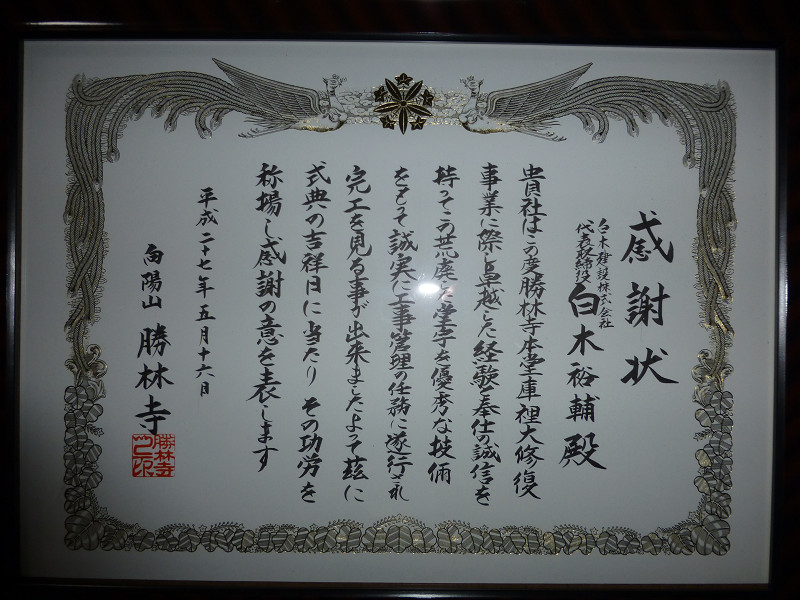 感謝状
白木建設株式会社
代表取締役
白木裕輔殿
貴社はこの度勝林寺本堂庫裡大修復
事業に際し卓越した経験と奉仕の誠信を
持ってこの荒廃した堂宇を優秀な技倆
をもって誠実に工事管理の任務に遂行され
完工を見る事が出来ましたよって茲に
式典の吉祥日に当たりその功労を
称揚し感謝の意を表します
平成二十七年五月十六日
向陽山 勝林寺
勝林寺